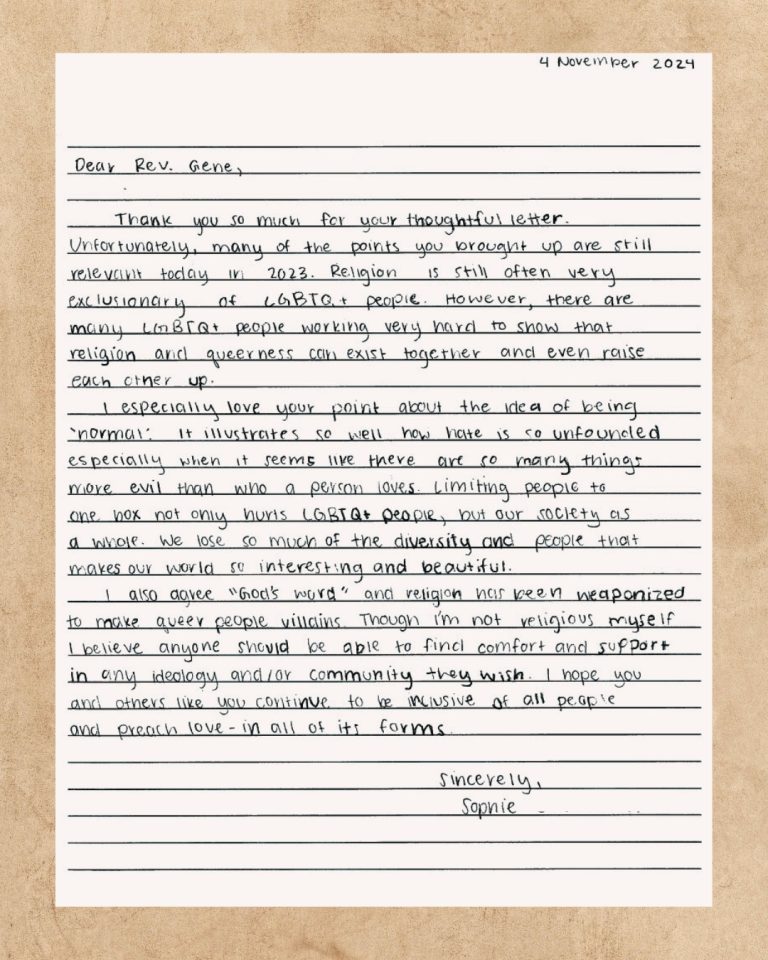 4 November 2024
Dear Rev. Gene,
Thank you so much for your thoughtful letter.
Unfortunately, many of the points you brought up are still
relevant today in 2023. Religion is still often very
exclusionary of LGBTQ+ people. However, there are
many LGBTQ+ people working very hard to show that
religion and queerness can exist together and even raise
each other up.
I especially love your point about the idea of being
'normal'. It illustrates so well how hate is so unfounded
especially when it seems like there are so many things
more evil than who a person loves. Limiting people to
one box not only hurts LGBTQ+ people, but our society as
a whole. We lose so much of the diversity and people that
makes our world so interesting and beautiful.
I also agree "God's word" and religion has been weaponized
to make queer people villains. Though I'm not religious myself
I believe anyone should be able to find comfort and support
in any ideology and/or community they wish. I hope you
and others like you continue to be inclusive of all people
and preach love - in all of its forms.
Sincerely,
Sophie